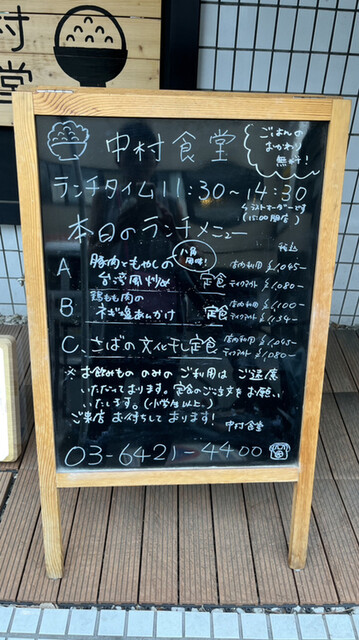 村
堂
中村食堂
ごはんの
おかわり
無料!
ランチタイム 11:30~14:30
(ラストオーダーです
15:00閉店)
本日のランチメニュー
税込
A 豚肉ともやしの
台湾風炒め 定食
店内利用 ¥1,045-
テイクアウト ¥1,080-
B 鶏もも肉の
ネギ塩あんかけ 定食
店内利用 ¥1,100-
テイクアウト ¥1,134-
C. さばの文化干し定食 店内利用 ¥1,045-
テイクアウト ¥1,080-
※お飲もののみのご利用は ご遠慮
いただいております。定食のご注文をお願い
いたします。(小学生以上)
ご来店お待ちしております!
中村食堂
03-6421-4400